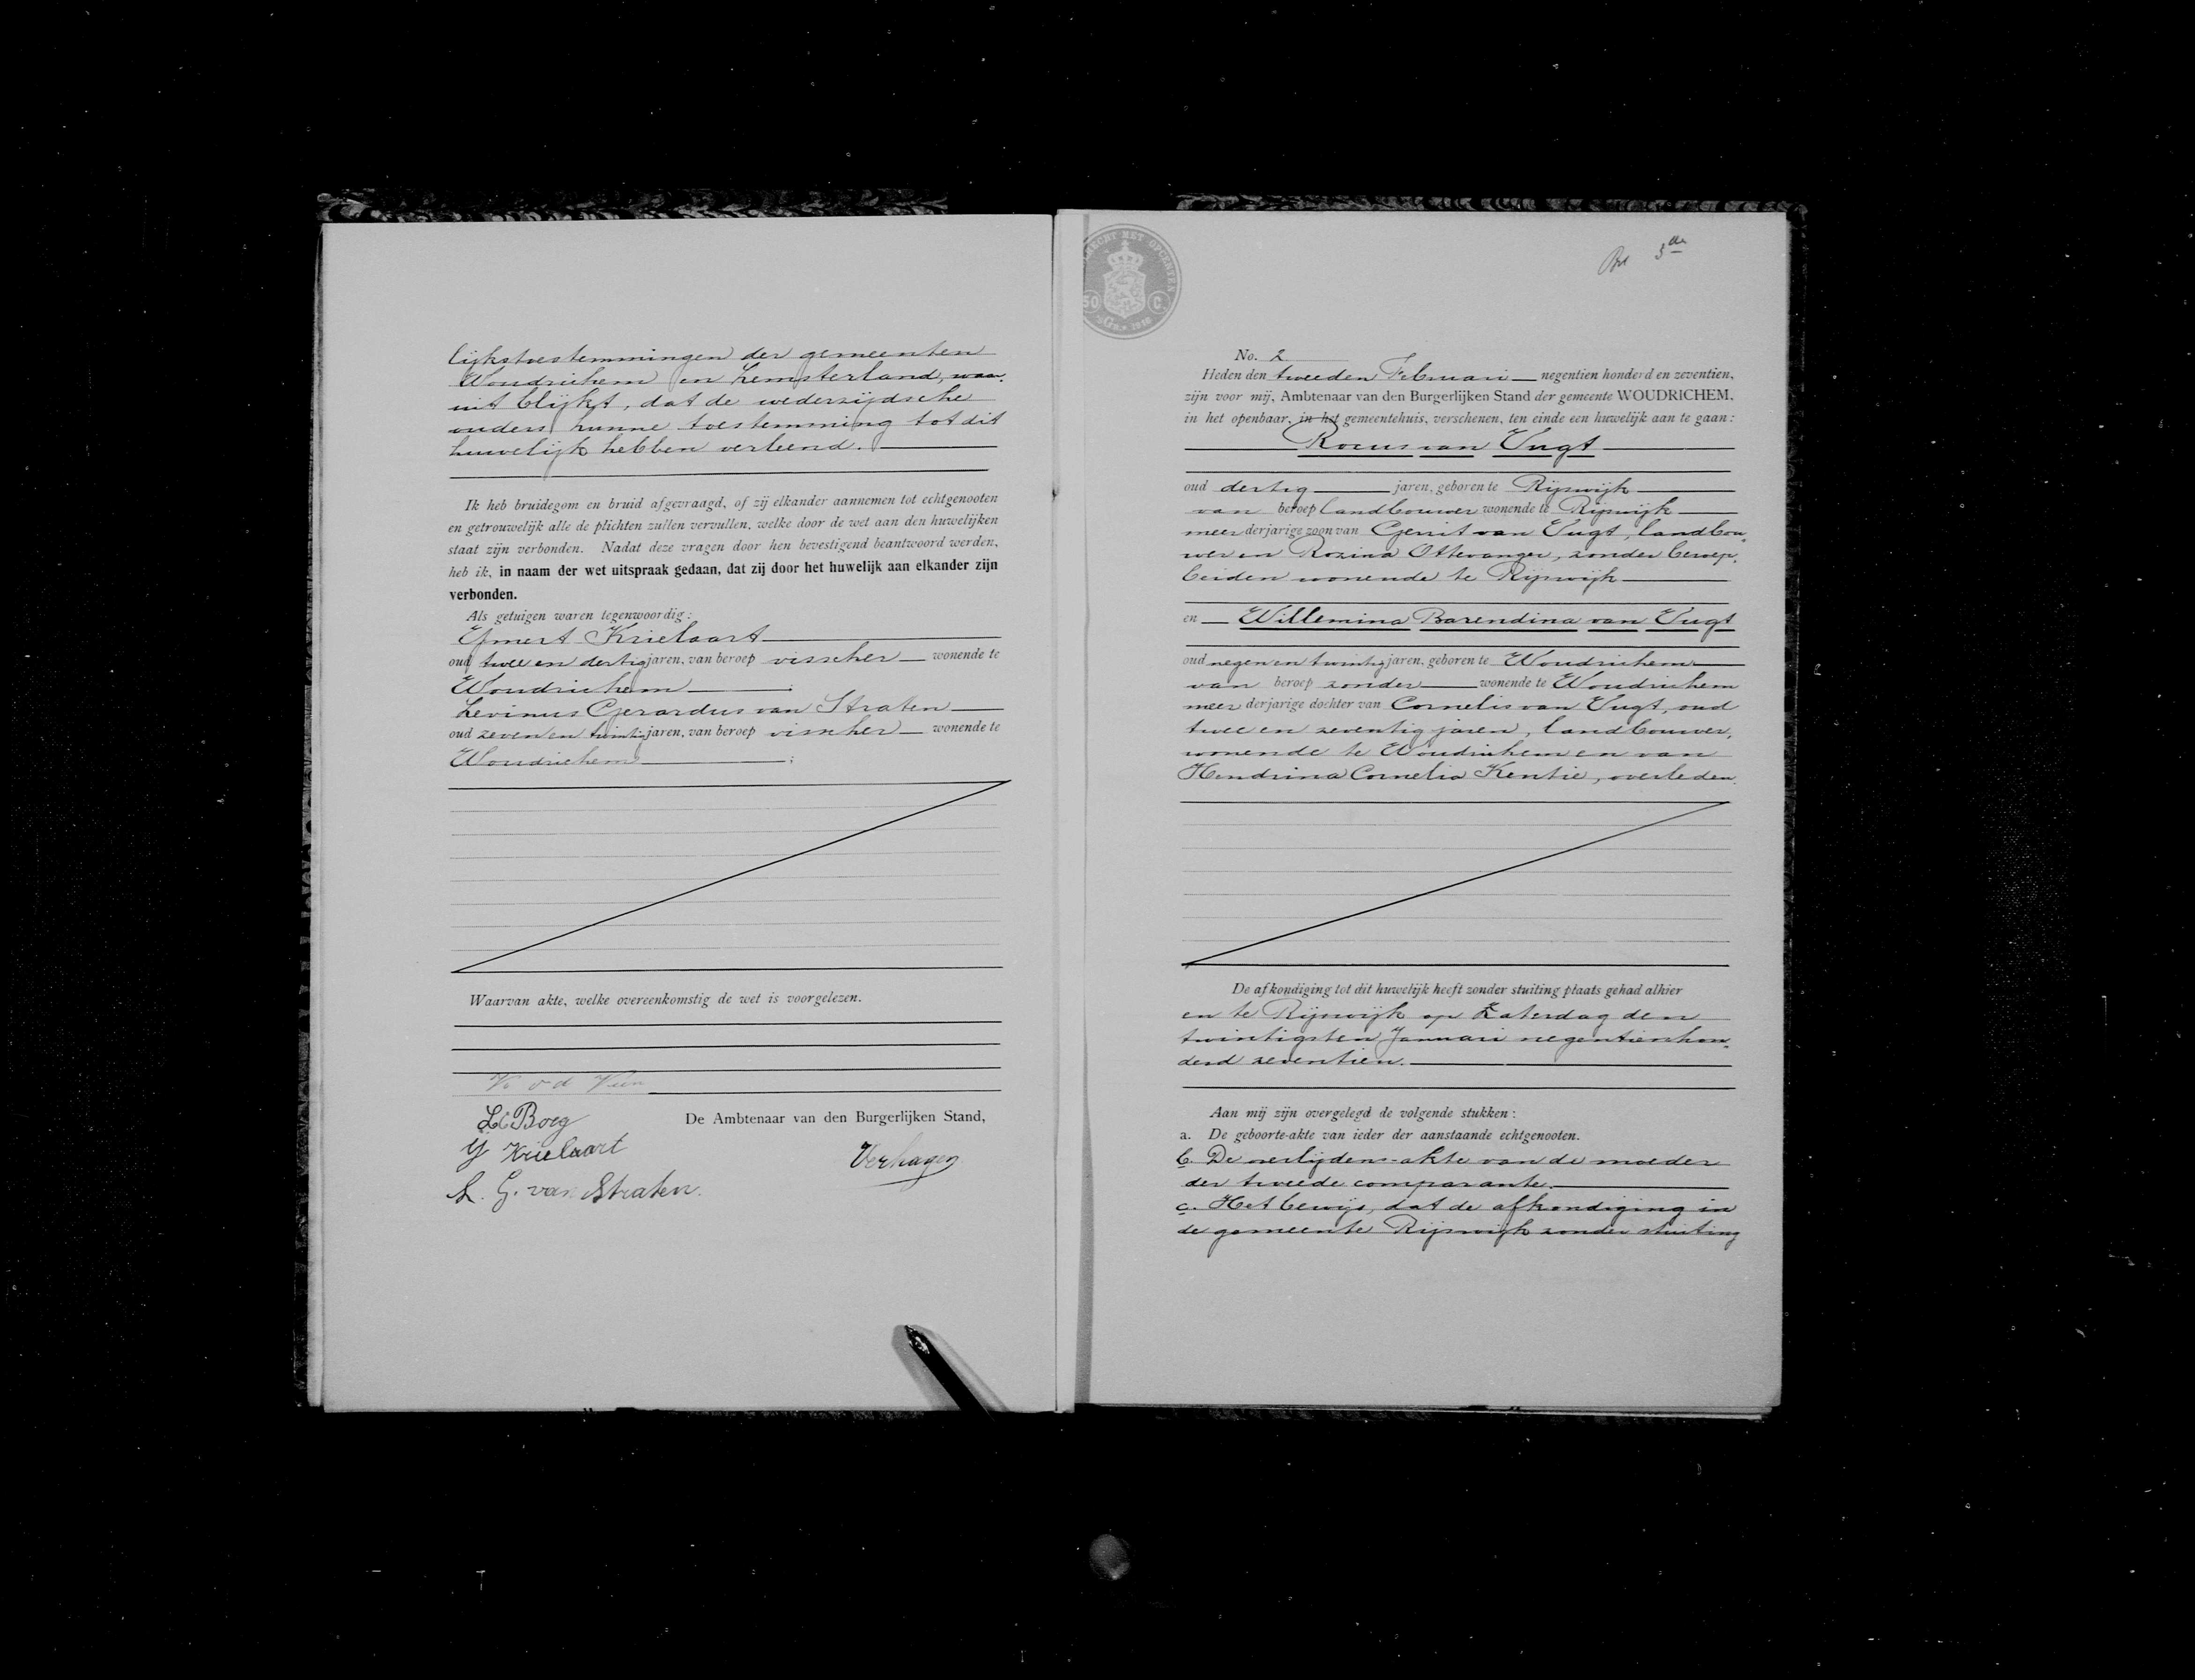 lijkstoestemmingen der gemeenten
Woudrichem en Lemsterland, waar-
uit blijkt, dat de wederzijdsche
ouders hunne toestemming tot dit
huwelijk hebben verleend.
Ik heb bruidegom en bruid afgevraagd, of zij elkander aannemen tot echtgenooten
en getrouwelijk alle de plichten zullen vervullen, welke door de wet aan den huwelijken
staat zijn verbonden. Nadat deze vragen door hen bevestigend beantwoord werden,
heb ik, in naam der wet uitspraak gedaan, dat zij door het huwelijk aan elkander zijn
verbonden.
Als getuigen waren tegenwoordig:
Ijmert Krielaart
oud twee en dertig jaren, van beroep visscher wonende te
Woudrichem ;
Levinus Gerardus van Straten
oud zeven en twintig jaren, van beroep visscher wonende te
Woudrichem ;
Waarvan akte, welke overeenkomstig de wet is voorgelezen.
K v d Veen
L C Boeg
De Ambtenaar van den Burgerlijken Stand,
Y Krielaart
Verhagen
L. G. van Straten.
RECHT MET OPCENTEN
50 C.
1916
3de
No. 2
Heden den tweeden Februari negentien honderd en zeventien,
zijn voor mij, Ambtenaar van den Burgerlijken Stand der gemeente WOUDRICHEM,
in het openbaar, in het gemeentehuis, verschenen, ten einde een huwelijk aan te gaan:
Rocus van Vugt
oud dertig jaren, geboren te Rijswijk
van beroep landbouwer wonende te Rijswijk
meerderjarige zoon van Gerrit van Vugt, landbou-
wer en Rozina Ottevanger, zonder beroep,
beiden wonende te Rijswijk
en Willemina Barendina van Vugt
oud negen en twintig jaren, geboren te Woudrichem
van beroep zonder wonende te Woudrichem
meerderjarige dochter van Cornelis van Vugt, oud
twee en zeventig jaren, landbouwer,
wonende te Woudrichem en van
Hendrina Cornelia Kentie, overleden.
De afkondiging tot dit huwelijk heeft zonder stuiting plaats gehad alhier
en te Rijswijk op Zaterdag den
twintigsten Januari negentienhon-
derd zeventien.
Aan mij zijn overgelegd de volgende stukken:
a. De geboorte-akte van ieder der aanstaande echtgenooten.
b. De overlijdens-akte van de moeder
der tweede comparante.
c. Het bewijs, dat de afkondiging in
de gemeente Rijswijk zonder stuiting